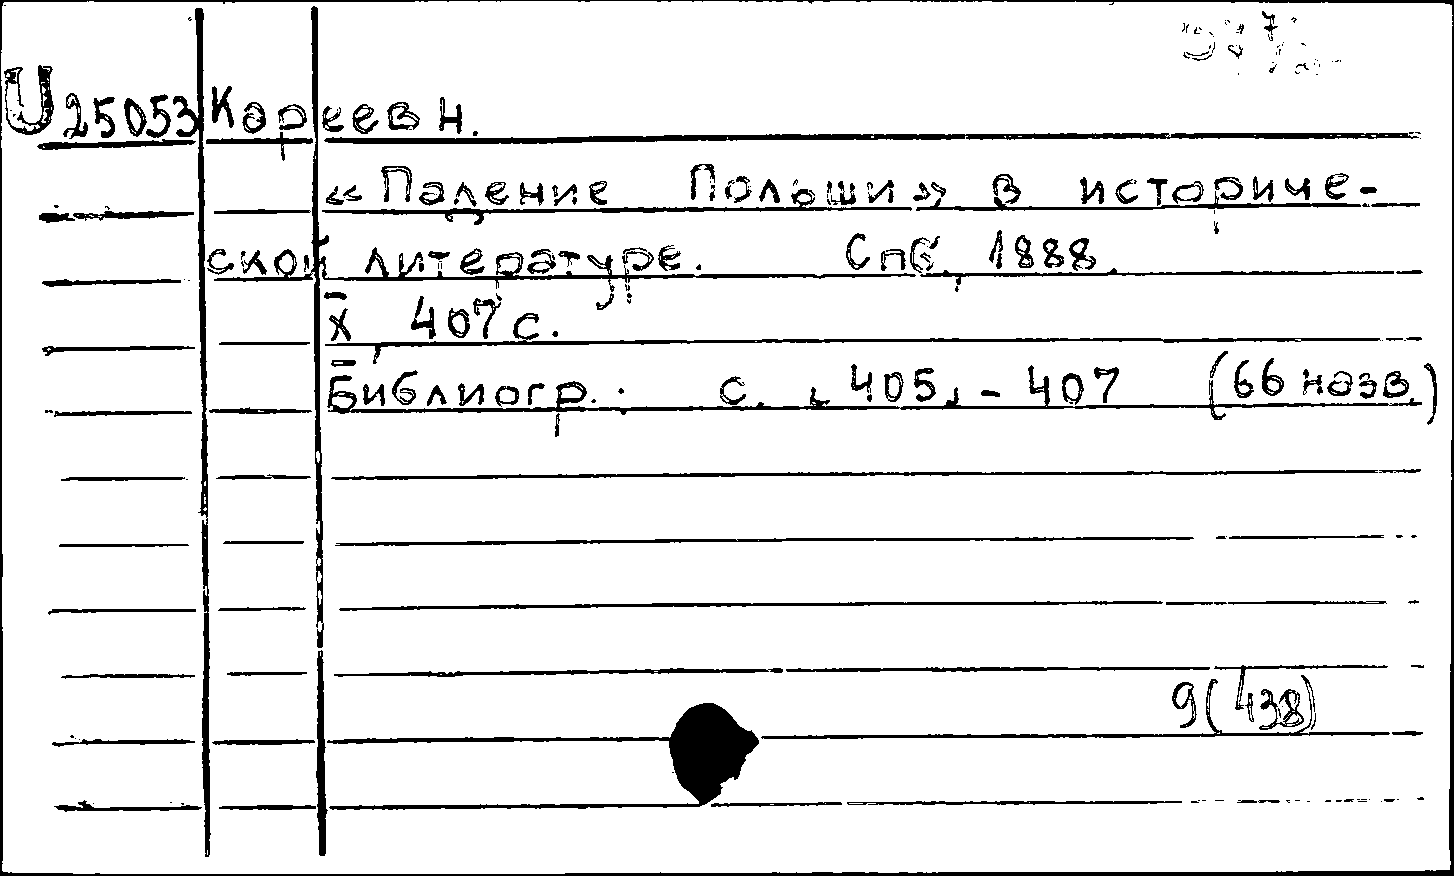 U 25053 Кареев Н.
«Падение Польши» в историче-
ской литературе. Спб., 1888.
X, 407 с.
Библиогр.: с. [405] - 407 (66 назв.)
9(438)